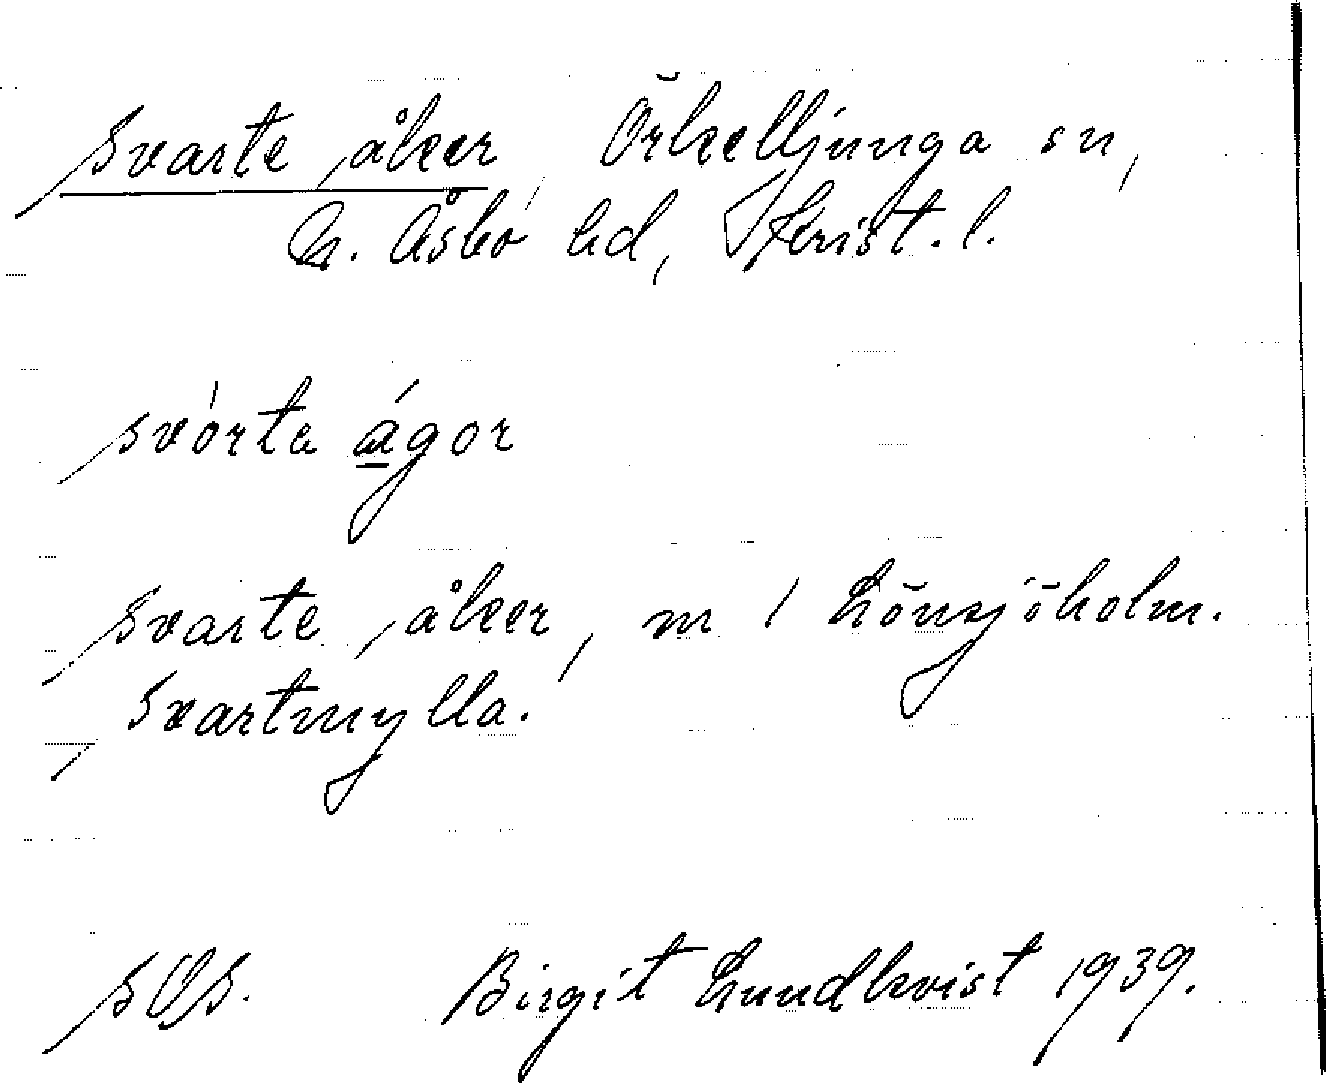 Svarte åker, Örkelljunga sn,
N. Åsbo hd, Krist. l.
svórta ágor
Svarte åker, m / Lönsjöholm.
Svartmylla.
Birgit Lundkvist 1939.